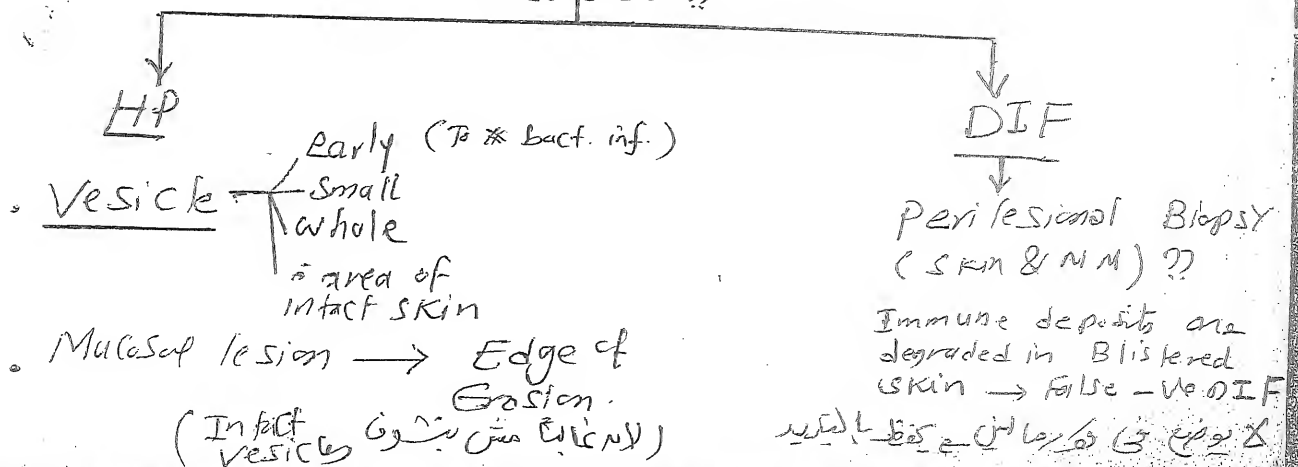 HP
DIF
early (To * bact. inf.)
• Vesicle
small
whole
c̄ area of
intact skin
• Mucosal lesion → Edge of
Erosion.
(لانه غالباً مش بنشوف Intact vesicles)
Perilesional Biopsy
(Skin & MM) ??
Immune deposits are
degraded in Blistered
skin → False -ve DIF
لا يوضع في فورمالين يحفظ بالتبريد